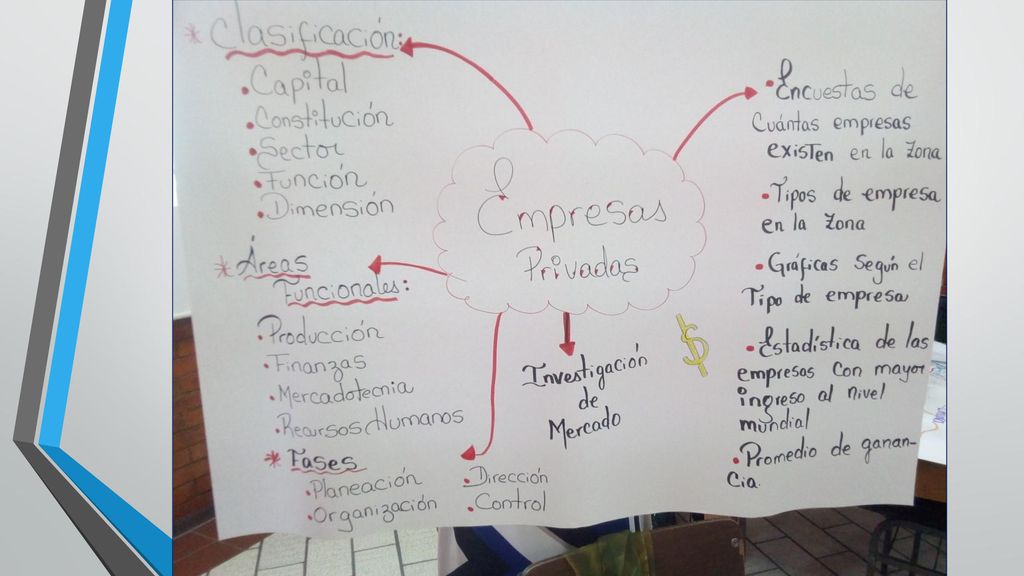 * Clasificación:
• Capital
• Constitución
• Sector
• Función
• Dimensión
* Áreas
Funcionales:
• Producción
• Finanzas
• Mercadotecnia
• Recursos Humanos
* Fases
• Planeación
• Organización
• Dirección
• Control
Empresas
Privadas
Investigación
de
Mercado
$
• Encuestas de
Cuántas empresas
existen en la zona
• Tipos de empresa
en la zona
• Gráficas según el
Tipo de empresa
• Estadística de las
empresas con mayor
ingreso al nivel
mundial
• Promedio de ganan-
cia.